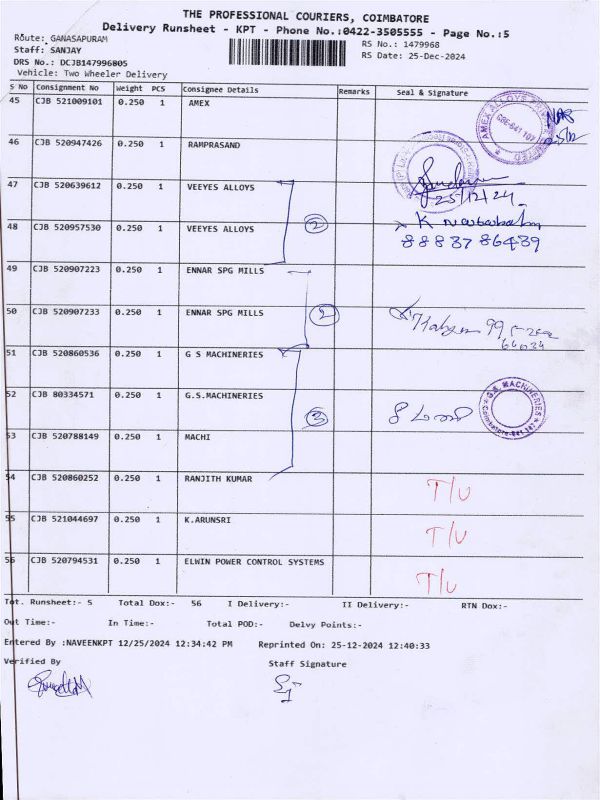 THE PROFESSIONAL COURIERS, COIMBATORE
Delivery Runsheet - KPT - Phone No.:0422-3505555 - Page No.:5
Route: GANASAPURAM
RS No.: 1479968
Staff: SANJAY
RS Date: 25-Dec-2024
DRS No.: DCJB147996805
Vehicle: Two Wheeler Delivery
S No Consignment No Weight PCS Consignee Details Remarks Seal & Signature
45 CJB 521009101 0.250 1 AMEX
AMEX ALLOYS PRIVATE LIMITED
46 CJB 520947426 0.250 1 RAMPRASAND
47 CJB 520639612 0.250 1 VEEYES ALLOYS
25/12/24
48 CJB 520957530 0.250 1 VEEYES ALLOYS 2
88837 86439
49 CJB 520907223 0.250 1 ENNAR SPG MILLS
50 CJB 520907233 0.250 1 ENNAR SPG MILLS 2
51 CJB 520860536 0.250 1 G S MACHINERIES
52 CJB 80334571 0.250 1 G.S.MACHINERIES 3
G.S. MACHINERIES
53 CJB 520788149 0.250 1 MACHI
54 CJB 520860252 0.250 1 RANJITH KUMAR T/U
55 CJB 521044697 0.250 1 K.ARUNSRI T/U
56 CJB 520794531 0.250 1 ELWIN POWER CONTROL SYSTEMS T/U
Tot. Runsheet:- 5 Total Dox:- 56 I Delivery:- II Delivery:- RTN Dox:-
Out Time:- In Time:- Total POD:- Delvy Points:-
Entered By :NAVEENKPT 12/25/2024 12:34:42 PM Reprinted On: 25-12-2024 12:40:33
Verified By Staff Signature